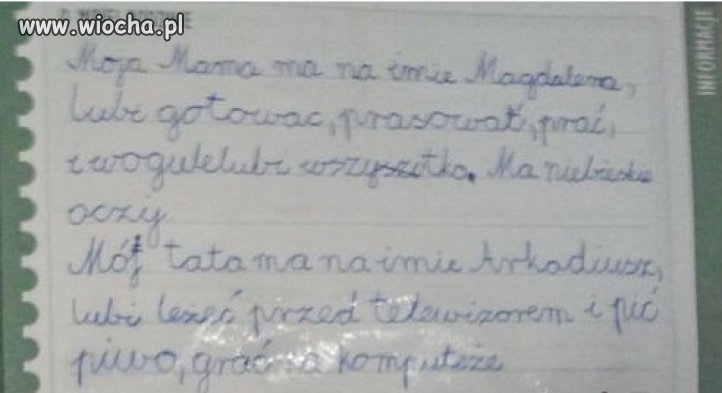 www.wiocha.pl
INFORMACJE
Moja Mama ma na imie Magdalena,
lubi gotowac, prasować, prać,
i wogulelubi wszyszttko. Ma niebieskie
oczy.
Mój tata ma na imie Arkadiusz,
lubi leżeć przed telewizorem i pić
piwo, grać na komputeże